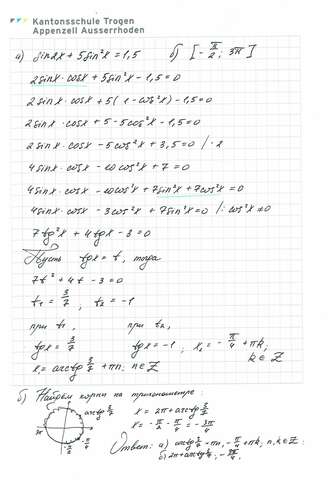 Kantonsschule Trogen
Appenzell Ausserrhoden
а) sin2x + 5sin²x = 1,5 б) [-π/2; 3π]
2sinx·cosx + 5sin²x - 1,5 = 0
2sinx·cosx + 5(1 - cos²x) - 1,5 = 0
2sinx·cosx + 5 - 5cos²x - 1,5 = 0
2sinx·cosx - 5cos²x + 3,5 = 0 /·2
4sinx·cosx - 10cos²x + 7 = 0
4sinx·cosx - 10cos²x + 7sin²x + 7cos²x = 0
4sinx·cosx - 3cos²x + 7sin²x = 0 /: cos²x ≠ 0
7tg²x + 4tgx - 3 = 0
Пусть tgx = t, тогда
7t² + 4t - 3 = 0
t₁ = 3/7, t₂ = -1
при t₁, при t₂,
tgx = 3/7 tgx = -1, x₂ = -π/4 + πk,
x₁ = arctg 3/7 + πn; n∈Z k∈Z
б) Найдём корни на тригонометре:
arctg 3/7 x = 2π + arctg 3/7
-π/2 -π/4 x = -π/2 - π/4 = -3π/4
Ответ: а) arctg 3/7 + πn, -π/4 + πk, n, k∈Z;
б) 2π + arctg 3/7; -3π/4.